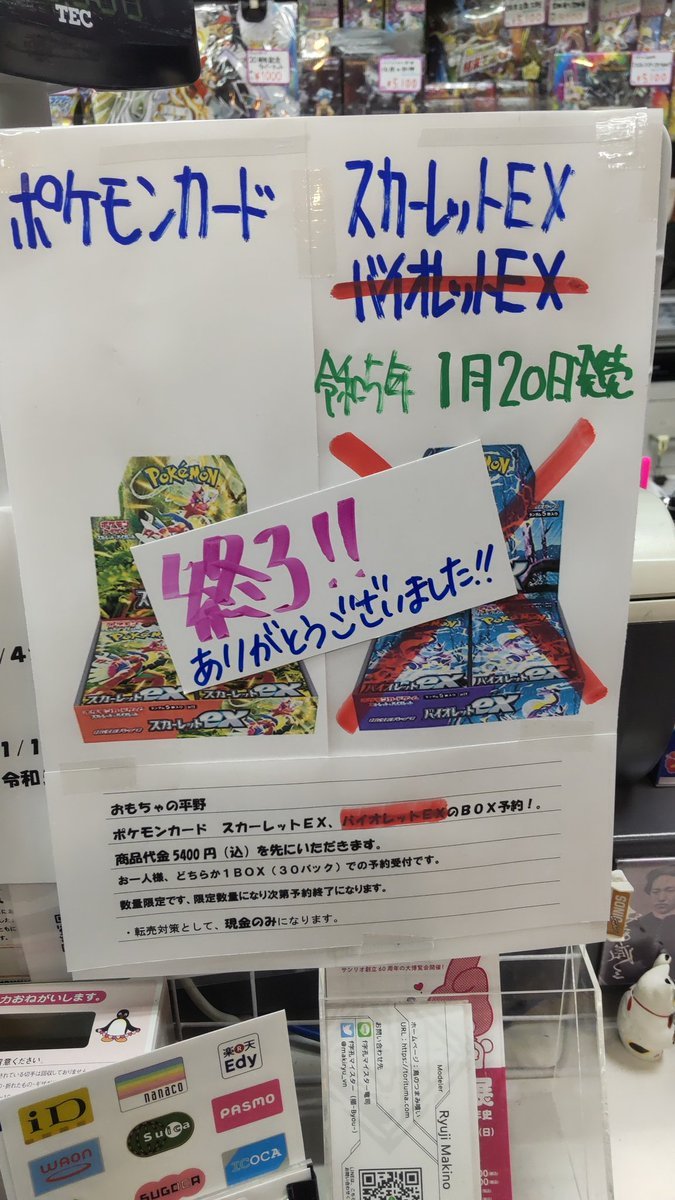 TEC
¥5,100
¥5,100
ポケモンカード
スカーレットEX
バイオレットEX
令和5年 1月20日発売
POKéMON
終了!!
ありがとうございました!!
スカーレットex
スカーレットex
スカーレットex
バイオレットex
バイオレットex
バイオレットex
おもちゃの平野
ポケモンカード スカーレットEX、バイオレットEXのBOX予約！。
商品代金5400円（込）を先にいただきます。
お一人様、どちらか1BOX（30パック）での予約受付です。
数量限定です、限定数量になり次第予約終了になります。
・転売対策として、現金のみになります。
サンリオ創立60周年の大博覧会開催！
力おねがいします。
楽天
Edy
nanaco
iD
PASMO
Suica
WAON
ICOCA
SUGOCA
Modeler
Ryuji Makino
ホームページ：鳥のつまみ喰い
URL：https://torituma.com
お問い合わせ先
@makiryu_vn
SONIC